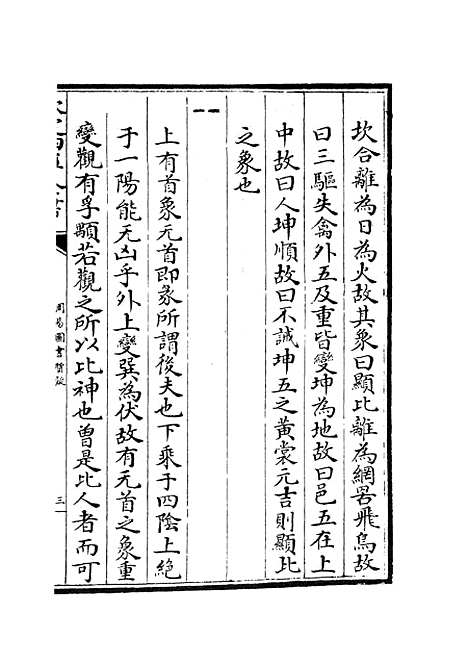 坎合離為日為火故其象曰顯比離為網罟飛鳥故
曰三驅失禽外五及重皆變坤為地故曰邑五在上
中故曰人坤順故曰不誡坤五之黃裳元吉則顯比
之象也
上有首象无首即彖所謂後夫也下乘于四陰上絕
于一陽能无凶乎外上變巽為伏故有无首之象重
變觀有孚顒若觀之所以比神也曾是比人者而可
周易圖書質疑